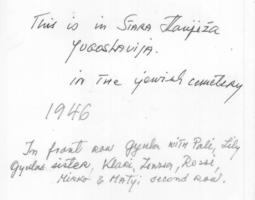 This is in STARA Kanjiža
YUGOSLAVIJA.
in the jewish cemetery
1946
In front row Gyula with Pali, Lily
Gyulas sister, Klari, Rozsi,
Mirko & Matyi second row.